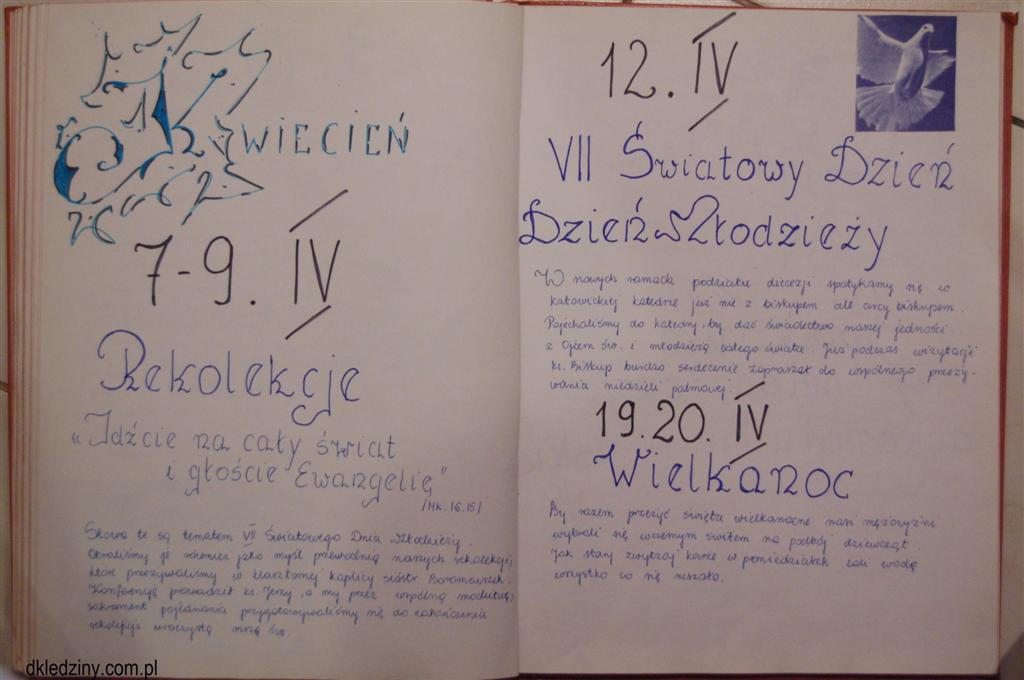 Kwiecień
7-9. IV
Rekolekcje
"Idźcie na cały świat
i głoście Ewangelię"
/Mk. 16.15/
Słowa te są tematem VII Światowego Dnia Młodzieży.
Obraliśmy je również jako myśl przewodnią naszych rekolekcji,
które przeżywaliśmy w klasztornej kaplicy sióstr Boromeuszek.
Konferencję prowadził ks. Jerzy, a my przez wspólną modlitwę,
sakrament pojednania przygotowywaliśmy się do zakończenia
rekolekcji uroczystą mszą św.
12. IV
VII Światowy Dzień
Dzień Młodzieży
W nowych ramach podziału diecezji spotykamy się w
katowickiej katedrze już nie z biskupem ale arcy biskupem.
Pojechaliśmy do katedry, by dać świadectwo naszej jedności
z Ojcem św. i młodzieżą całego świata. Już podczas wizytacji
ks. Biskup bardzo serdecznie zapraszał do wspólnego przeży-
wania niedzieli palmowej.
19.20. IV
Wielkanoc
By razem przeżyć święta wielkanocne nasi mężczyźni
wybrali się wczesnym świtem na podbój dziewcząt.
Jak stary zwyczaj karze w poniedziałek lali wodą
wszystko co się ruszało.
dkledziny.com.pl